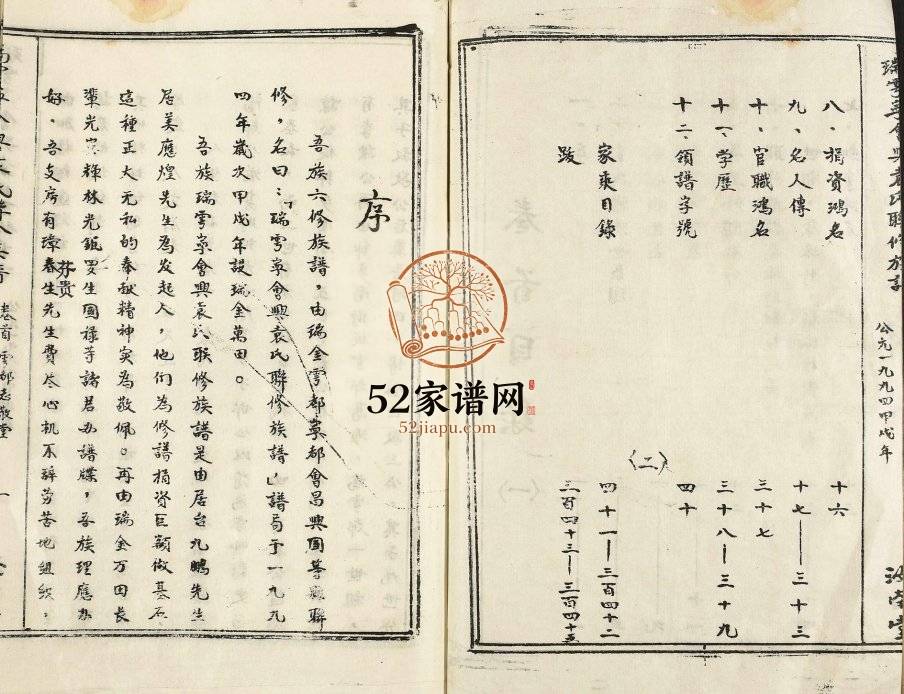 公元一九九四甲戌年
八、捐资鴻名 十六
九、名人傳 十七——三十三
十、官職鴻名 三十七
十一、学歷 三十八——三十九
十二、領譜字號 四十
〈二〉
家乘目錄 四十一——三百四十二
跋 三百四十三——三百四十五
序
吾族六修族譜，由瑞金雩都寧都會昌興國等縣聯
修，名曰：「瑞雩寧會興袁氏聯修族譜」譜局于一九九
四年歲次甲戌年設瑞金萬田。
吾族瑞雩寧會興袁氏联修族譜是由居台九鵬先生
居美應煌先生為发起人，他们為修譜捐資巨額做基石
這種正大无私的奉献精神实為敬佩。再由瑞金万田長
輩光宗輝林光鉅罗生國禄等諸君办譜牒，吾族理應办
好。吾支房有璋春生先生費尽心机不辞劳苦地組织，
芬贵
卷首 雩都志敬堂 一
52家谱网
52jiapu.com